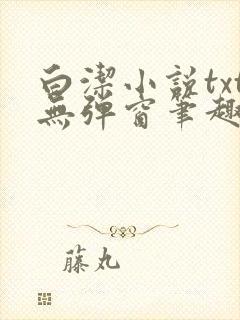 白潔小説txt
無彈窗筆趣
藤丸